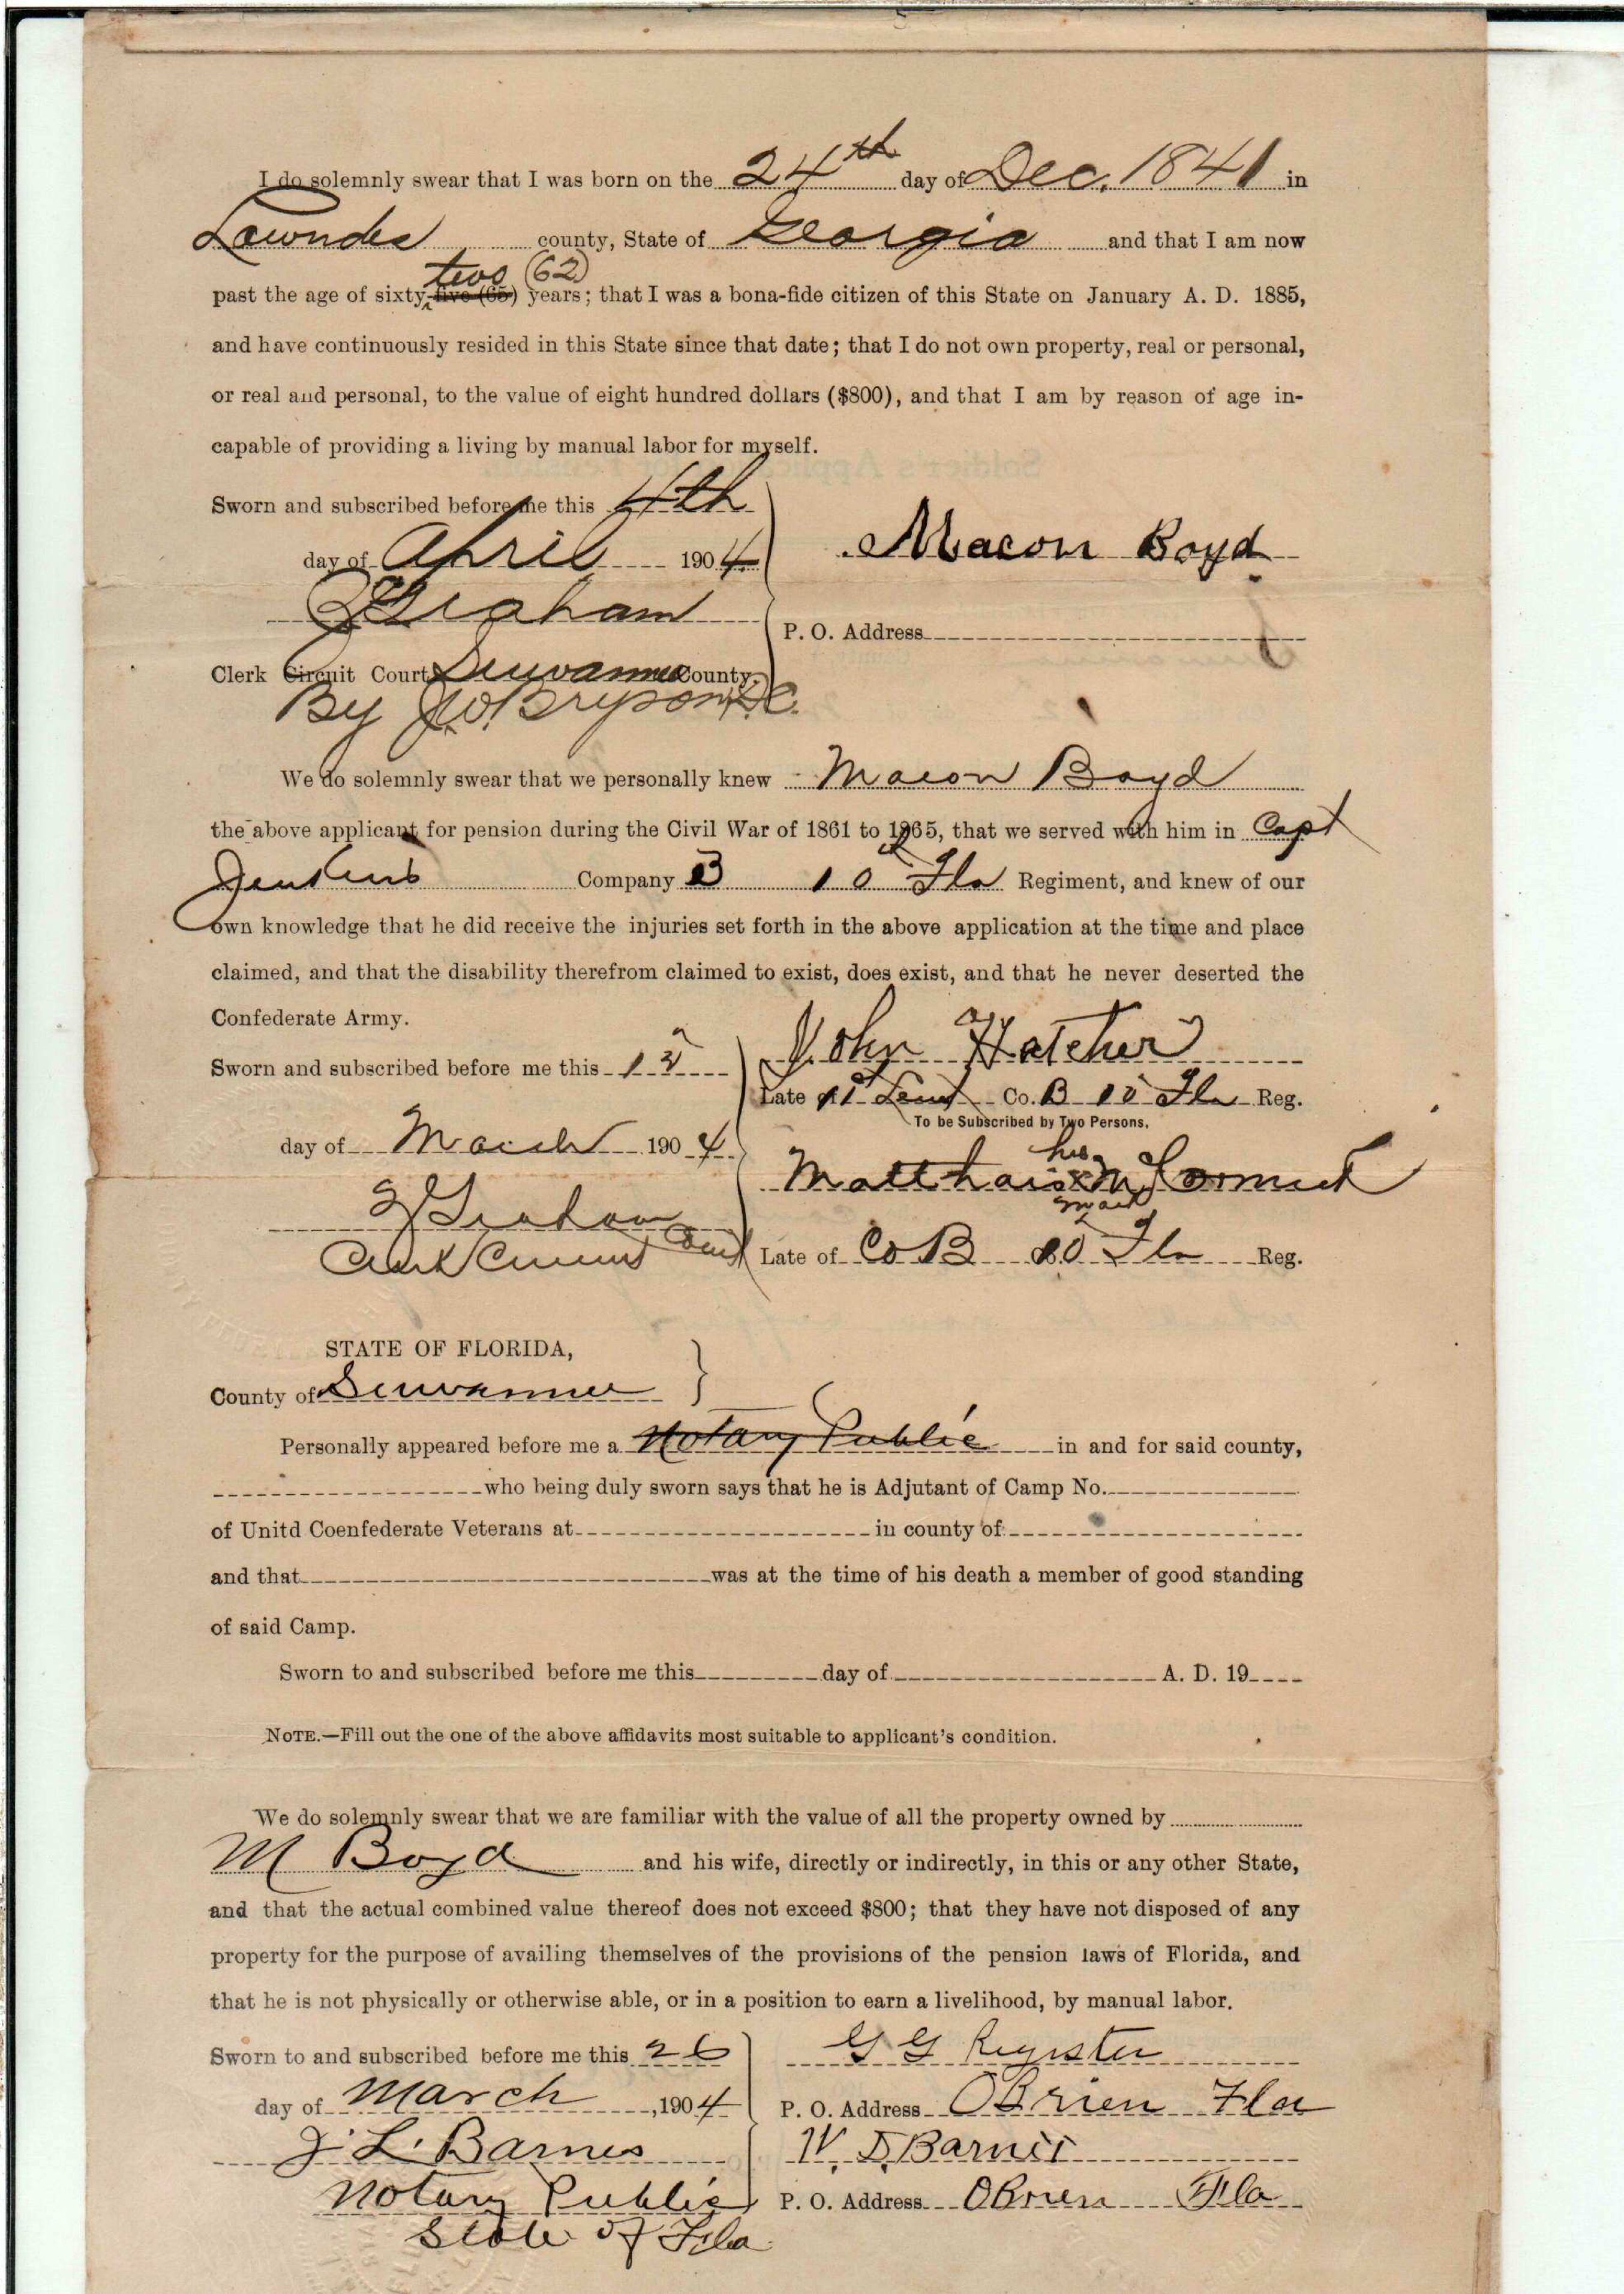 I do solemnly swear that I was born on the 24th day of Dec. 1841 in
Lowndes county, State of Georgia and that I am now
two (62)
past the age of sixty-five (65) years; that I was a bona-fide citizen of this State on January A. D. 1885,
and have continuously resided in this State since that date; that I do not own property, real or personal,
or real and personal, to the value of eight hundred dollars ($800), and that I am by reason of age in-
capable of providing a living by manual labor for myself.
Sworn and subscribed before me this 4th
day of April 1904
Macon Boyd
Graham
P. O. Address
Clerk Circuit Court Suwannee County.
By J W Bryson D.C.
We do solemnly swear that we personally knew Macon Boyd
the above applicant for pension during the Civil War of 1861 to 1865, that we served with him in Capt
Jenkins Company B 10 Fla Regiment, and knew of our
own knowledge that he did receive the injuries set forth in the above application at the time and place
claimed, and that the disability therefrom claimed to exist, does exist, and that he never deserted the
Confederate Army.
John Hatcher
Sworn and subscribed before me this
Late 1st Lieut Co. B 10 Fla Reg.
To be Subscribed by Two Persons.
day of March 1904
his
Matthais x McCormick
mark
Graham
Clerk Circuit Court
Late of Co B 10 Fla Reg.
STATE OF FLORIDA,
County of Suwannee
Personally appeared before me a Notary Public in and for said county,
who being duly sworn says that he is Adjutant of Camp No.
of Unitd Coenfederate Veterans at in county of
and that was at the time of his death a member of good standing
of said Camp.
Sworn to and subscribed before me this day of A. D. 19
NOTE.—Fill out the one of the above affidavits most suitable to applicant's condition.
We do solemnly swear that we are familiar with the value of all the property owned by
M Boyd and his wife, directly or indirectly, in this or any other State,
and that the actual combined value thereof does not exceed $800; that they have not disposed of any
property for the purpose of availing themselves of the provisions of the pension laws of Florida, and
that he is not physically or otherwise able, or in a position to earn a livelihood, by manual labor.
Sworn to and subscribed before me this 26
G G Register
day of March, 1904
P. O. Address OBrien Fla
J. L. Barnes
W. D. Barnes
Notary Public
P. O. Address OBrien Fla
State of Fla